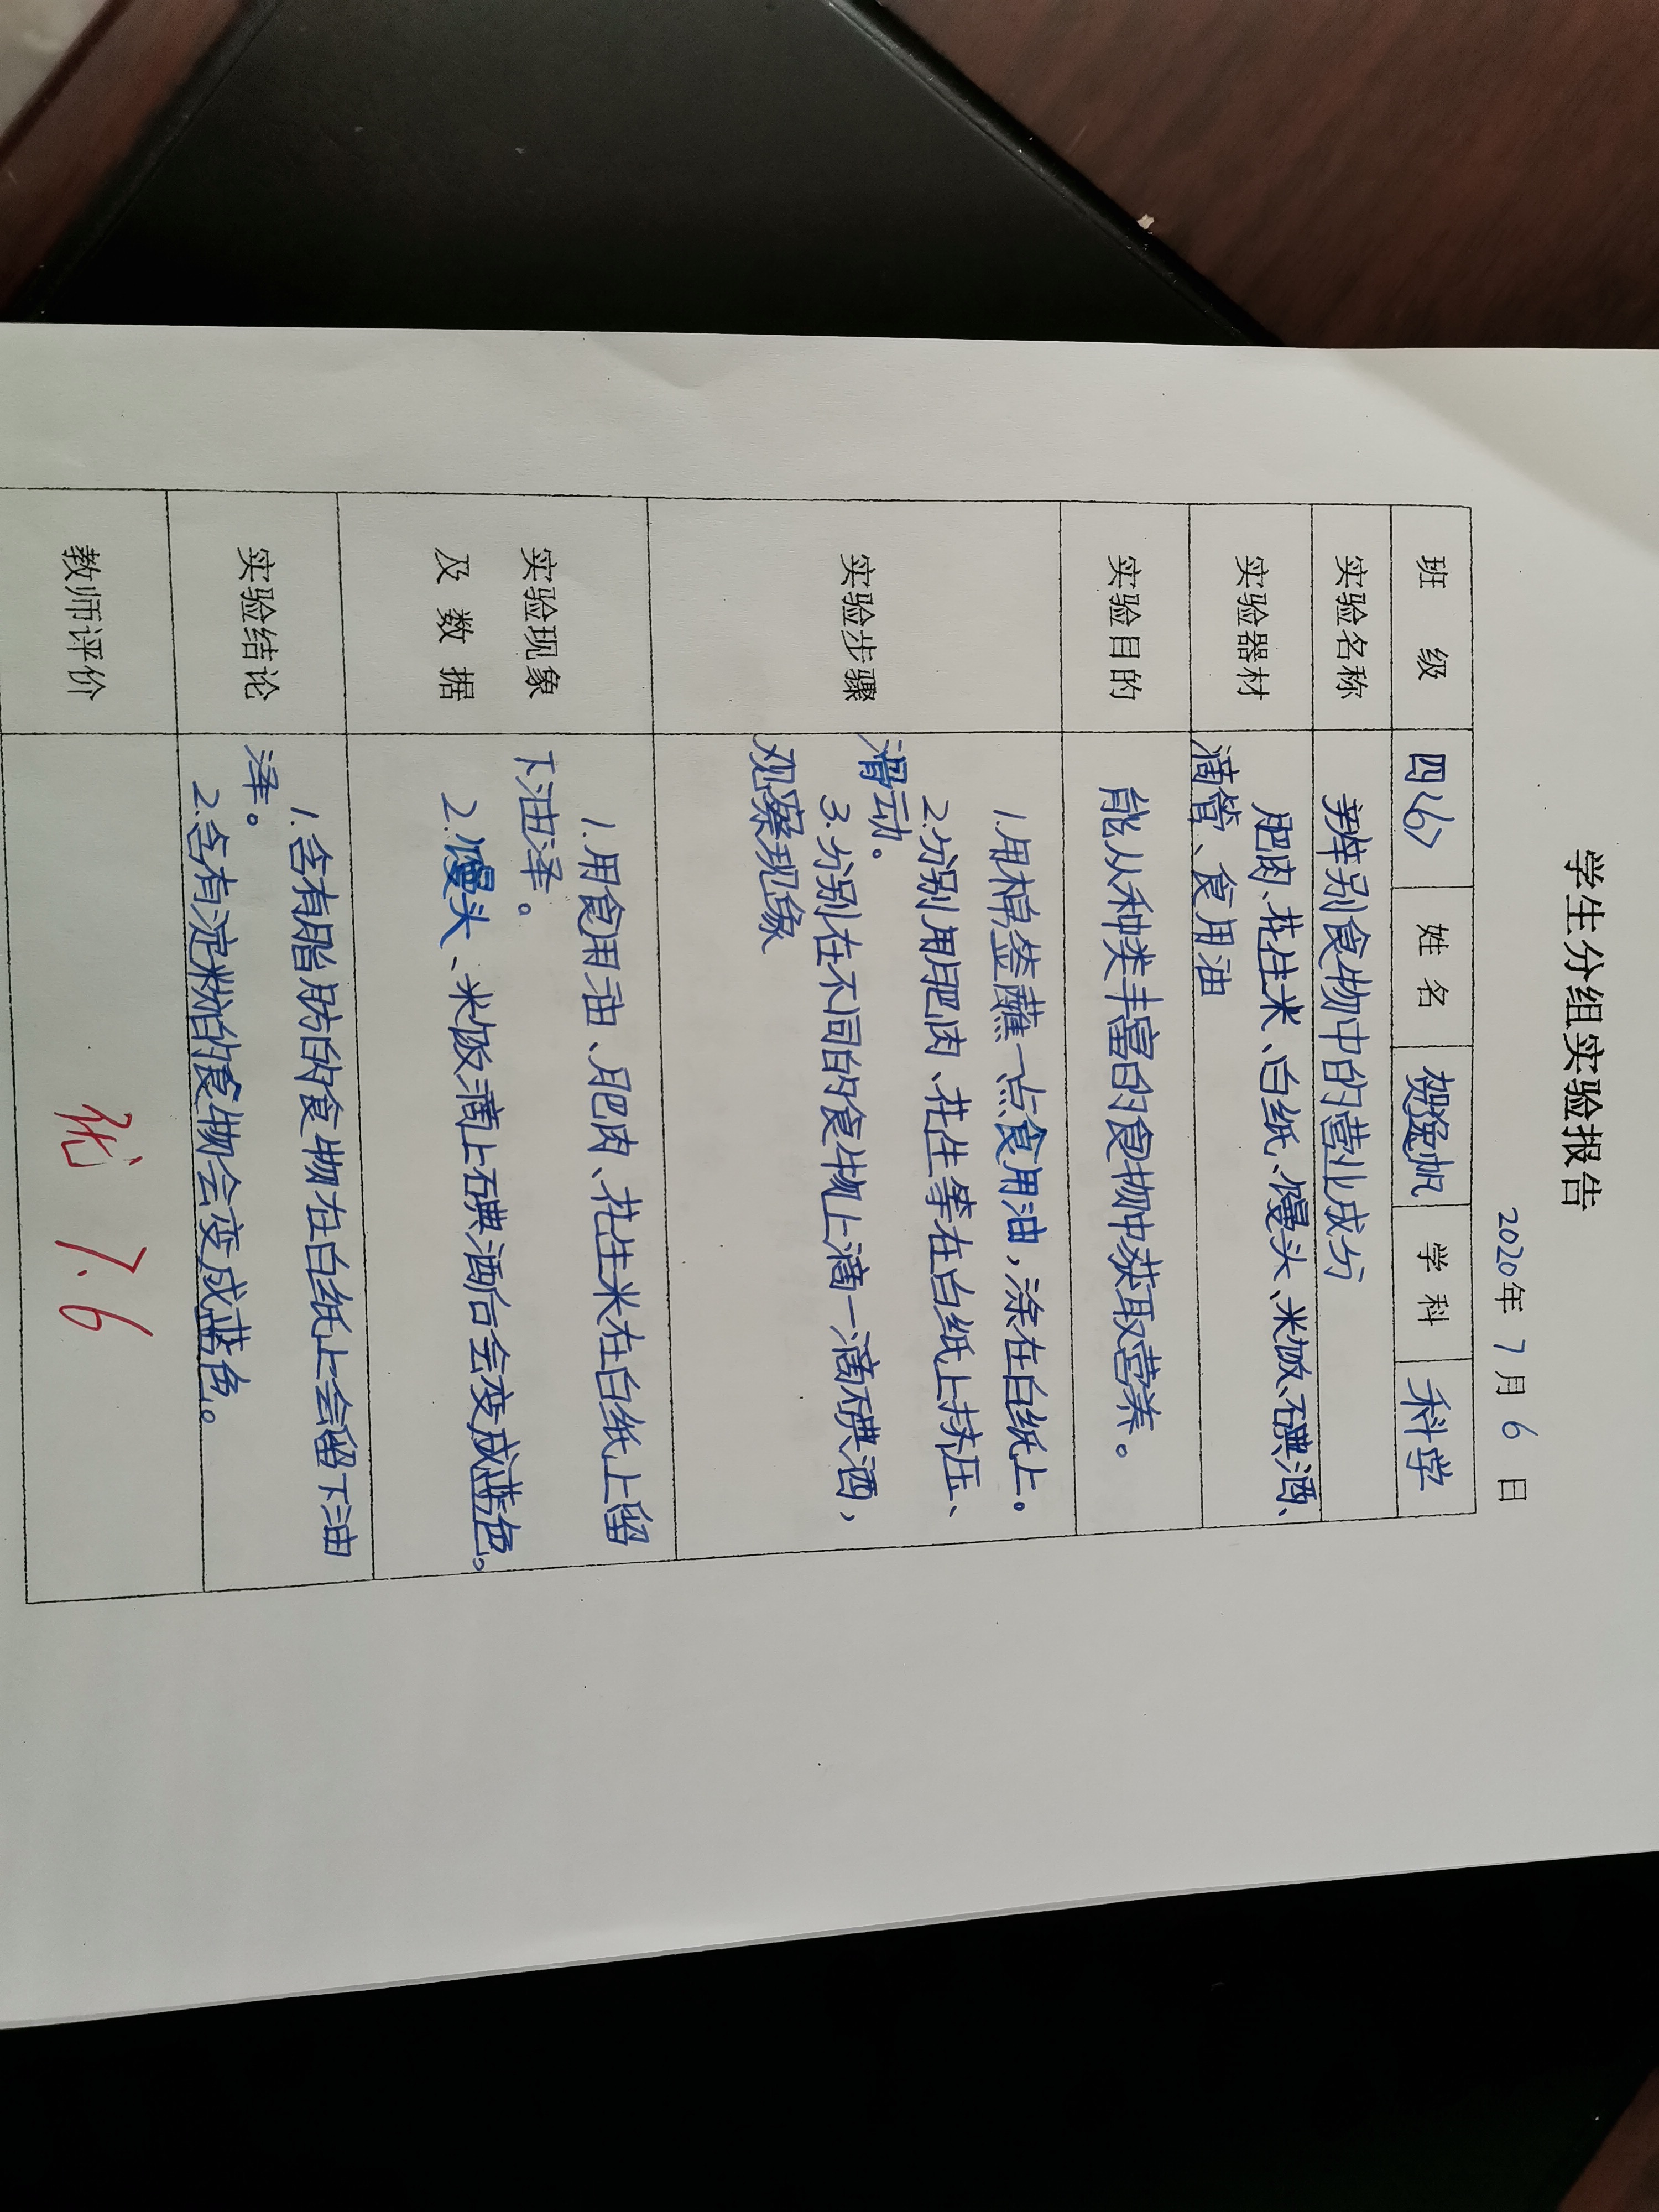 学生分组实验报告
2020年 7 月 6 日
班 级 四<6> 姓 名 贺逸帆 学 科 科学
实验名称 辨别食物中的营业成分
实验器材 肥肉、花生米、白纸、馒头、米饭、碘酒、
滴管、食用油
实验目的 能从种类丰富的食物中获取营养。
实验步骤
1.用棉签蘸一点食用油,涂在白纸上。
2.分别用肥肉、花生等在白纸上挤压、
滑动。
3.分别在不同的食物上滴一滴碘酒,
观察现象
实验现象
及 数 据
1.用食用油、肥肉、花生米在白纸上留
下油泽。
2.馒头、米饭滴上碘酒后会变成蓝色。
实验结论
1.含有脂肪的食物在白纸上会留下油
泽。
2.含有淀粉的食物会变成蓝色。
教师评价 优 7.6